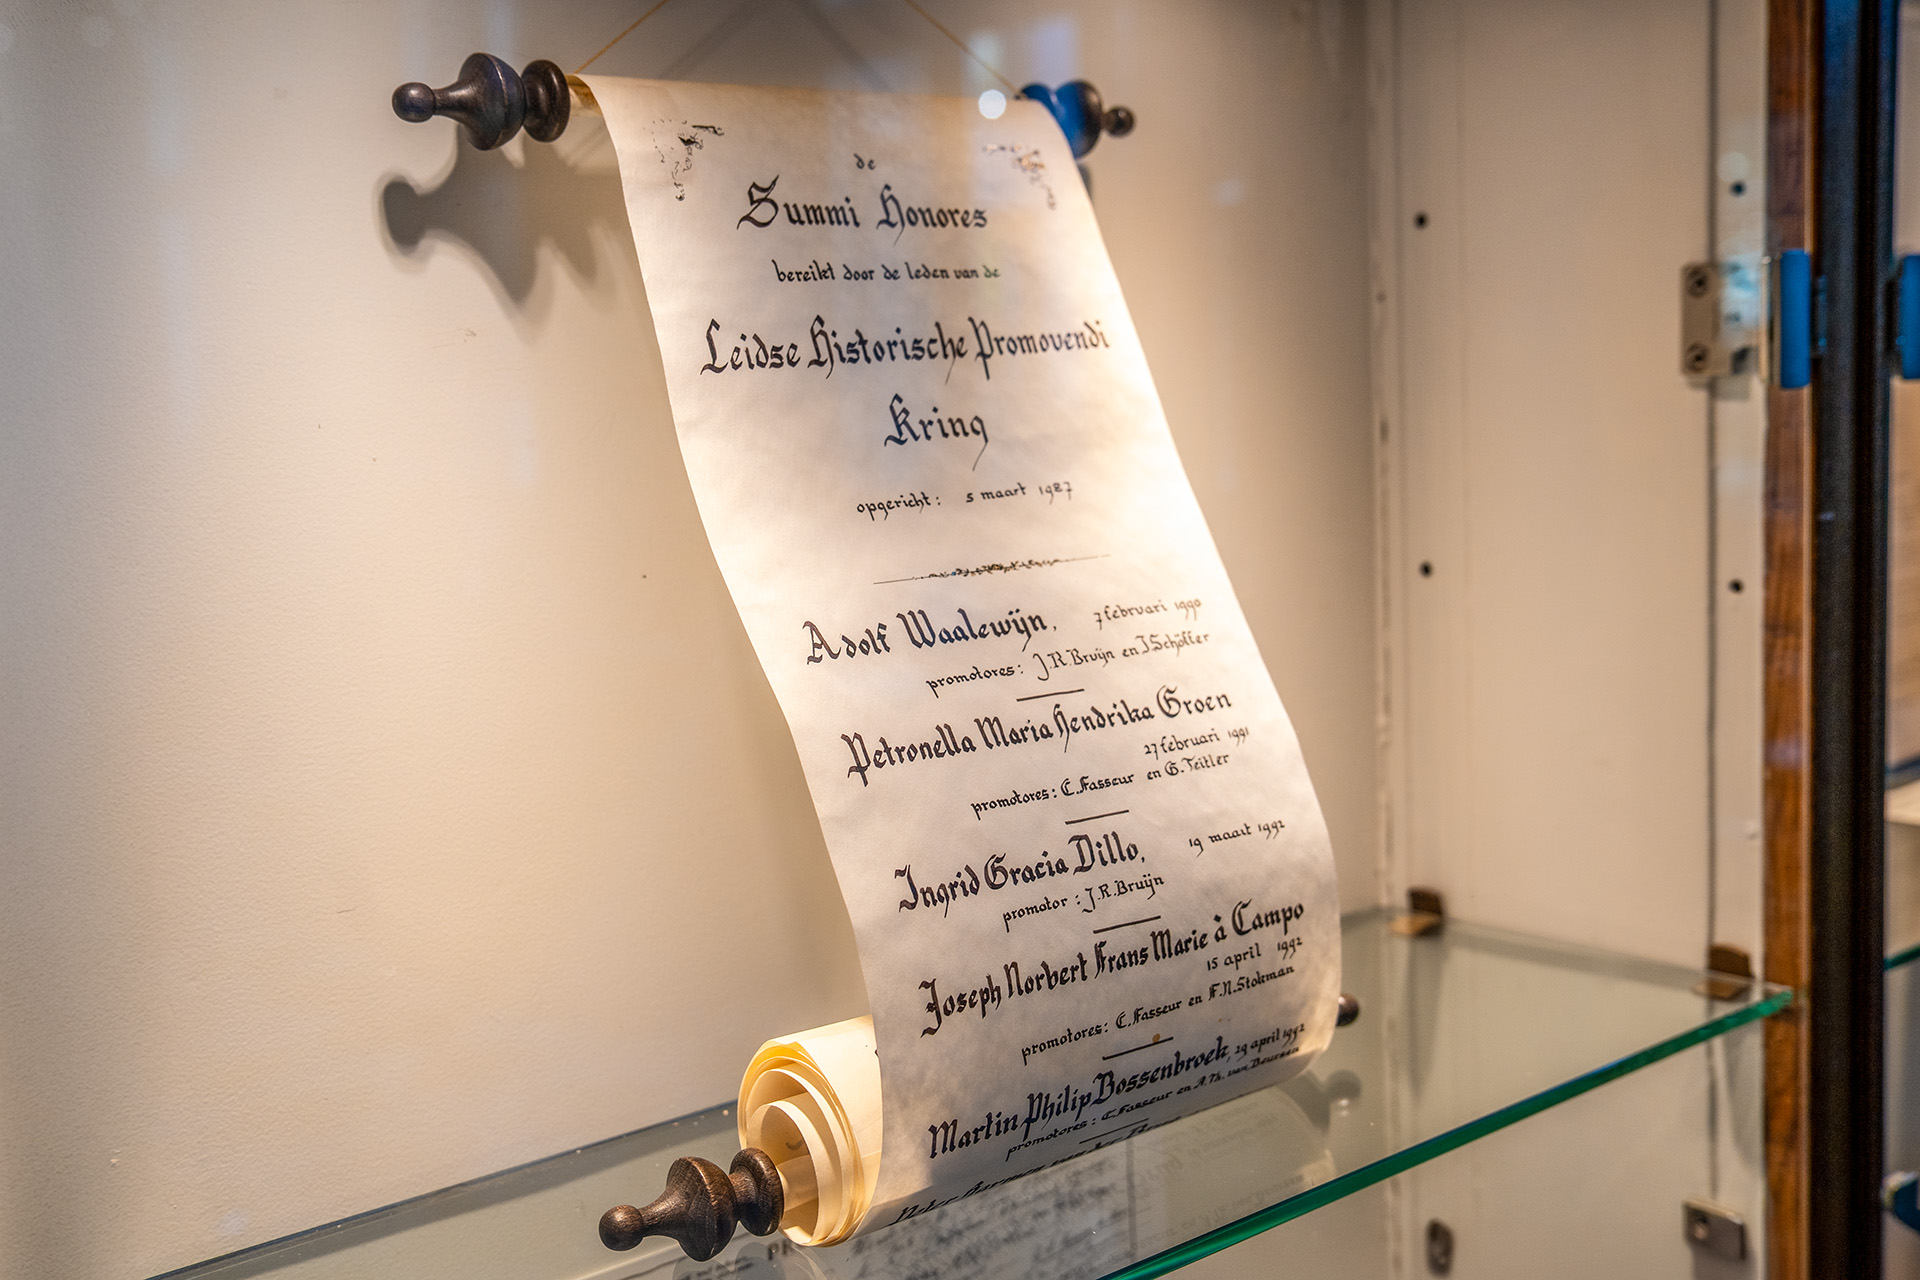 de
Summi Honores
bereikt door de leden van de
Leidse Historische Promovendi
Kring
opgericht: 5 maart 1987
Adolf Waalewijn, 7 februari 1990
promotores: J.R. Bruijn en J. Schöffer
Petronella Maria Hendrika Groen
27 februari 1991
promotores: C. Fasseur en G. Teitler
Ingrid Gracia Dillo, 19 maart 1992
promotor: J.R. Bruijn
Joseph Norbert Frans Marie à Campo
15 april 1992
promotores: C. Fasseur en F.N. Stokman
Martin Philip Bossenbroek, 29 april 1992
promotores: C. Fasseur en A. Th. van Deursen